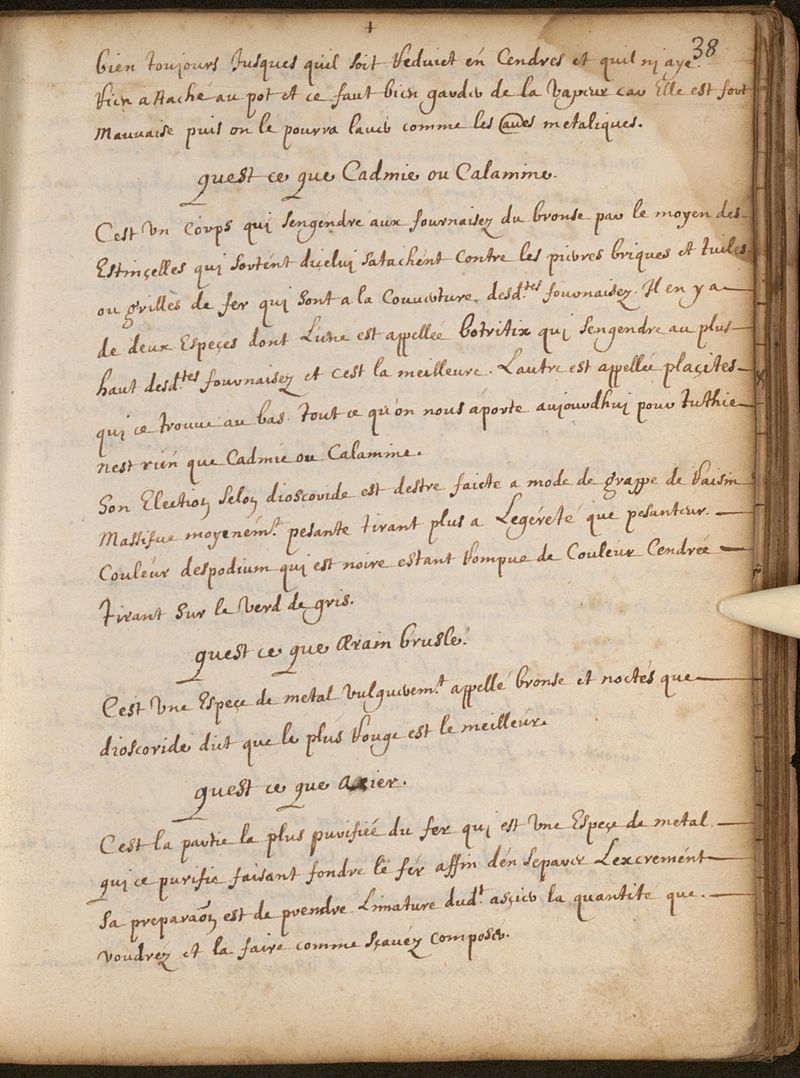 +
38
bien toujours Jusques quil soit Reduict en Cendres et quil ni aye
Rien attache au pot et ce faut bien garder de la vapeur car Elle est fort
Mauuaise puis on le pourra lauer comme les autres metaliques.
quest ce que Cadmie ou Calamine.
Cest Vn Corps qui sengendre aux fournaisez du bronse par le moyen des
Estinçelles qui sortent diçelui satachent Contre les pierres briques et tuiles
ou grilles de fer qui sont a la Couuerture desd.tes fournaisez. Il en y a
de deux Espeçes dont Lune est appelleé botritix qui sengendre au plus
haut desd.tes fournaisez et cest la meilleure. Lautre est appellee plaçites
qui ce trouue au bas. tout ce qu'on nous aporte aujourdhui pour tuthie
nest rien que Cadmie ou Calamine.
Son Election selon dioscoride est destre faicte a mode de grappe de Raisin
Massiſue moyenem.t pesante tirant plus a Legéreté que pesanteur.
Couleur despodium qui est noire estant Rompue de Couleur Cendreé
tirant sur le Verd de gris.
quest ce que ærain bruslé.
Cest Vne Espeçe de metal vulguerem.t appellé bronse et noctés que
dioscoride dict que le plus Rouge est le meilleur.
quest ce que acier.
Cest la partie la plus purifiée du fer qui est Vne Espeçe de metal
qui ce purifie faisant fondre le fer affin den separer Lexcrement
Sa preparaõn est de prendre Limature dud.t assier la quantite que
voudrez et la faire comme sçauez composer.